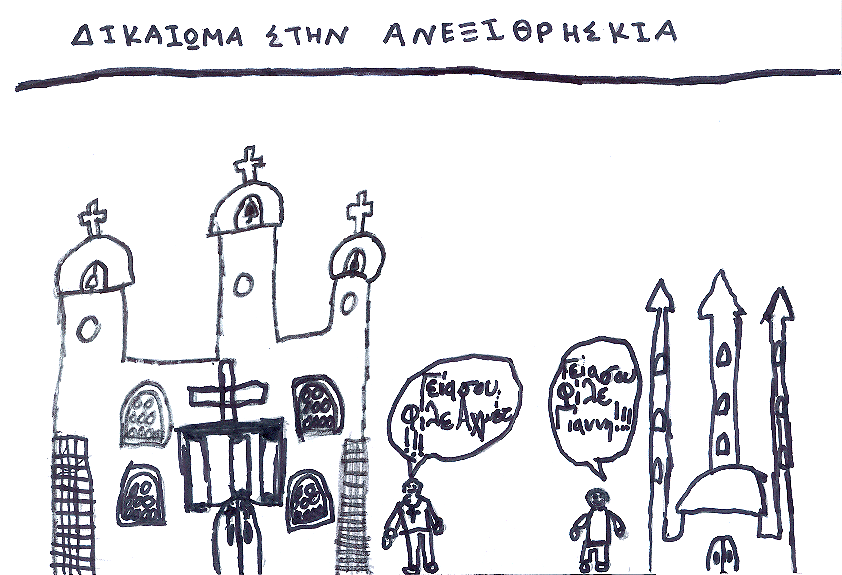 ΔΙΚΑΙΩΜΑ ΣΤΗΝ ΑΝΕΞΙΘΡΗΣΚΙΑ
Γεία σου,
Φίλε Αχμέτ
!!!
Γεία σου
Φίλε
Γιάννη!!!